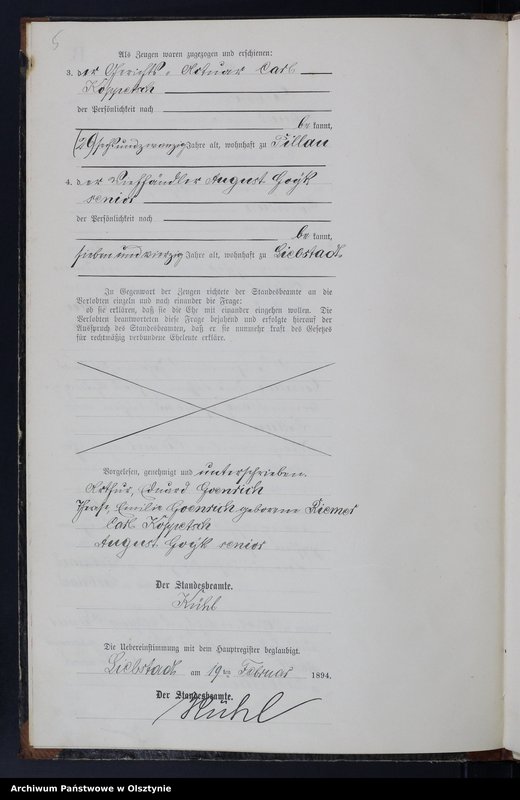 5
Als Zeugen waren zugezogen und erschienen:
3. der Gerichts-Aktuar Carl
Köppetsch
der Persönlichkeit nach
be kannt,
26 sechsundzwanzig Jahre alt, wohnhaft zu Pillau
4. der Viehhändler August
senior
der Persönlichkeit nach
be kannt,
siebenundvierzig Jahre alt, wohnhaft zu Liebstadt.
In Gegenwart der Zeugen richtete der Standesbeamte an die
Verlobten einzeln und nach einander die Frage:
ob sie erklären, daß sie die Ehe mit einander eingehen wollen. Die
Verlobten beantworteten diese Frage bejahend und erfolgte hierauf der
Ausspruch des Standesbeamten, daß er sie nunmehr kraft des Gesetzes
für rechtmäßig verbundene Eheleute erkläre.
Vorgelesen, genehmigt und unterschrieben.
Arthur, Eduard Goenrich
Emilie Goenrich geborene Riemer
Carl Köppetsch
August senior
Der Standesbeamte.
Kuhl
Die Uebereinstimmung mit dem Hauptregister beglaubigt.
Liebstadt am 19ten Februar 1894.
Der Standesbeamte.
Kuhl
Archiwum Państwowe w Olsztynie